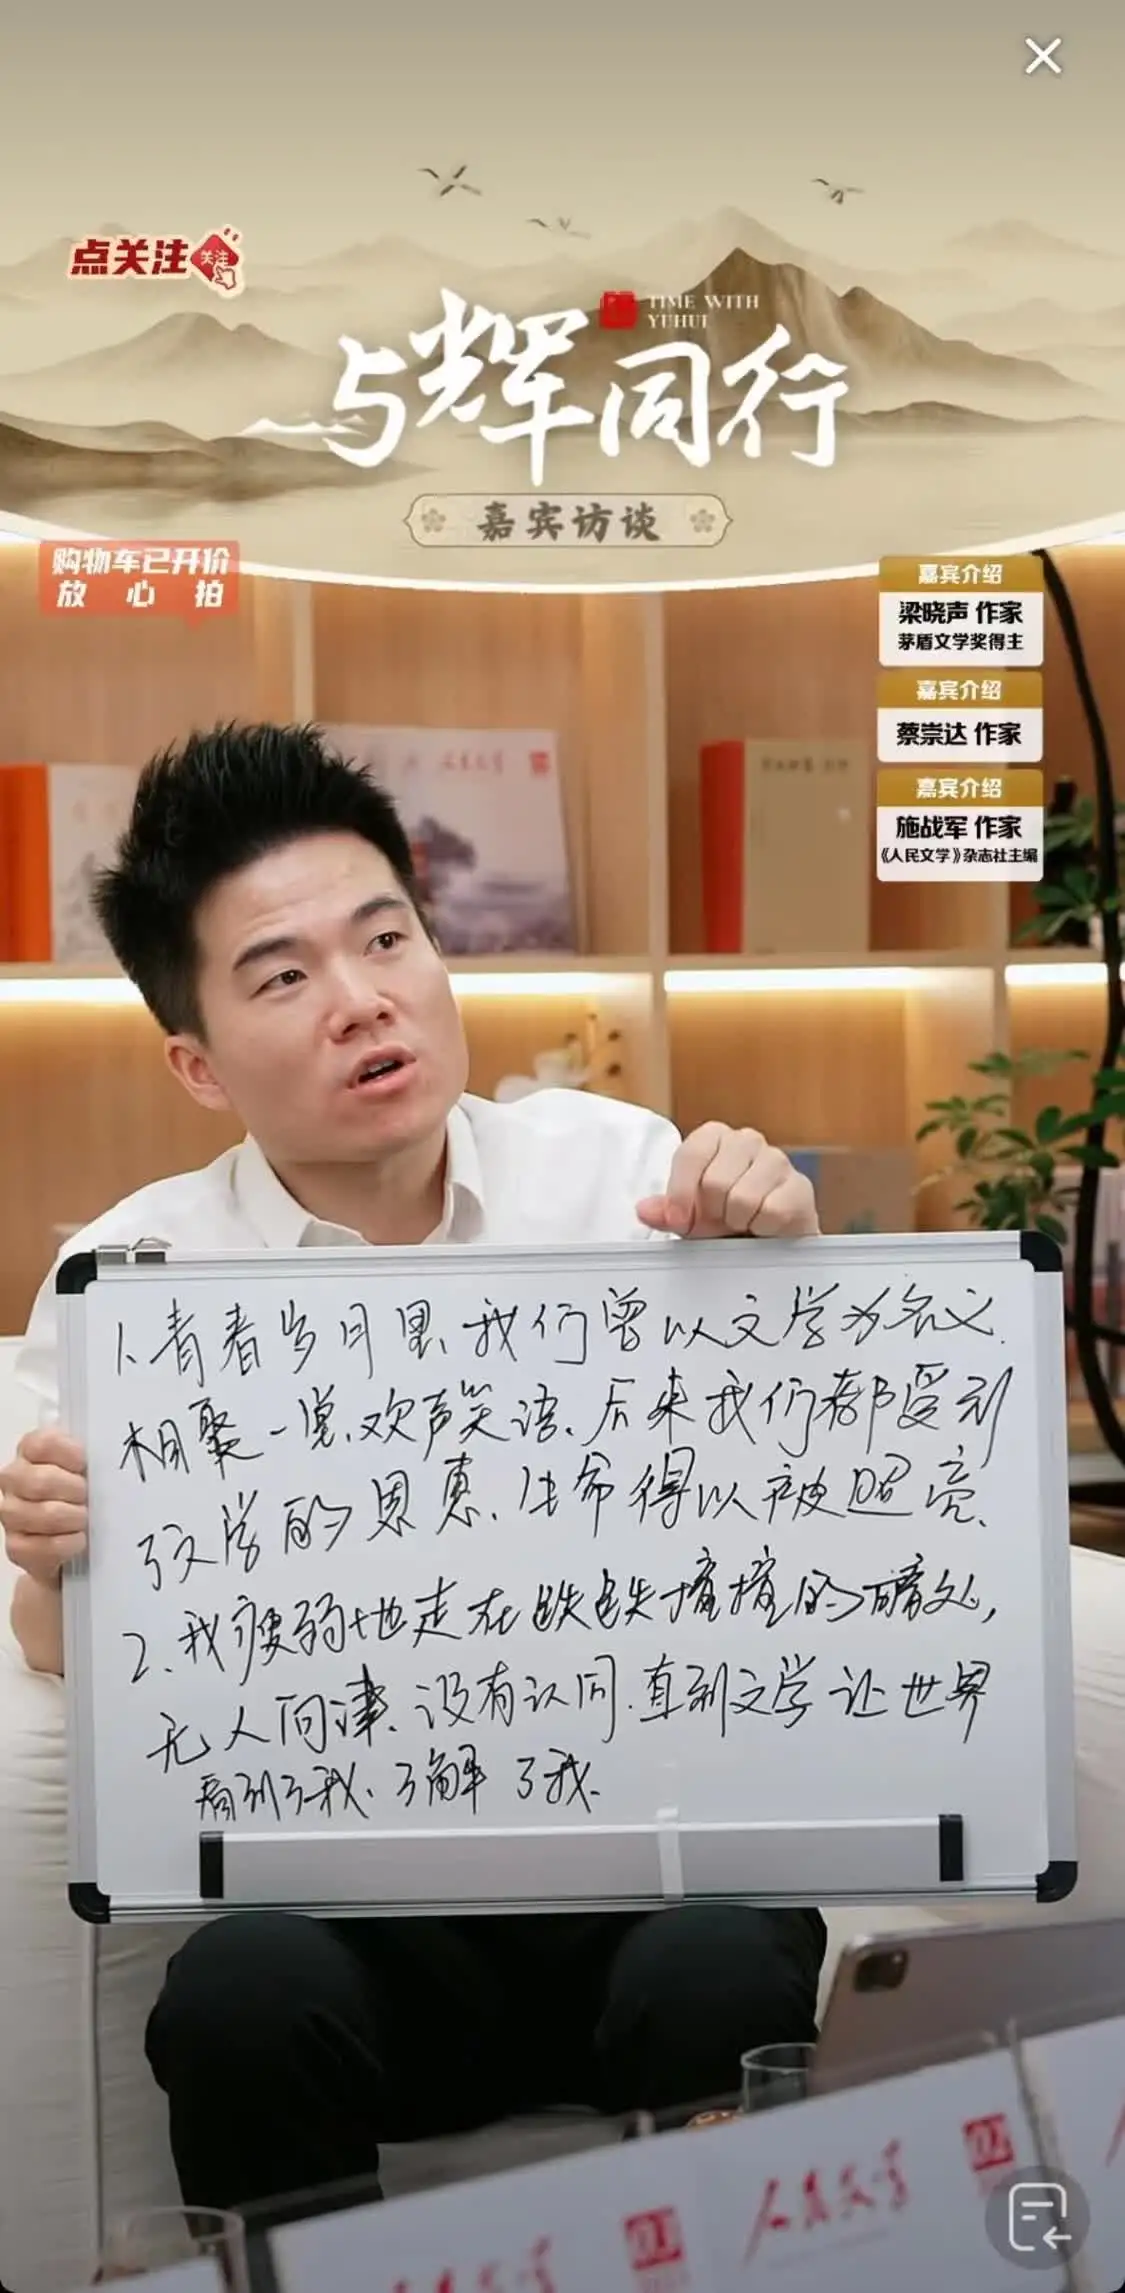 点关注
关注
TIME WITH
YUHUI
与辉同行
嘉宾访谈
购物车已开价
放心拍
嘉宾介绍
梁晓声 作家
茅盾文学奖得主
嘉宾介绍
蔡崇达 作家
嘉宾介绍
施战军 作家
《人民文学》杂志社主编
人民文学
1、青春岁月里、我们曾以文学为名义、
相聚一堂、欢声笑语、后来我们都受到
了文学的恩惠、生命得以被照亮、
2、我疲弱地走在跌跌撞撞的暗处，
无人问津、没有认同、直到文学让世界
看到了我、了解了我、
人民文学
人民文学